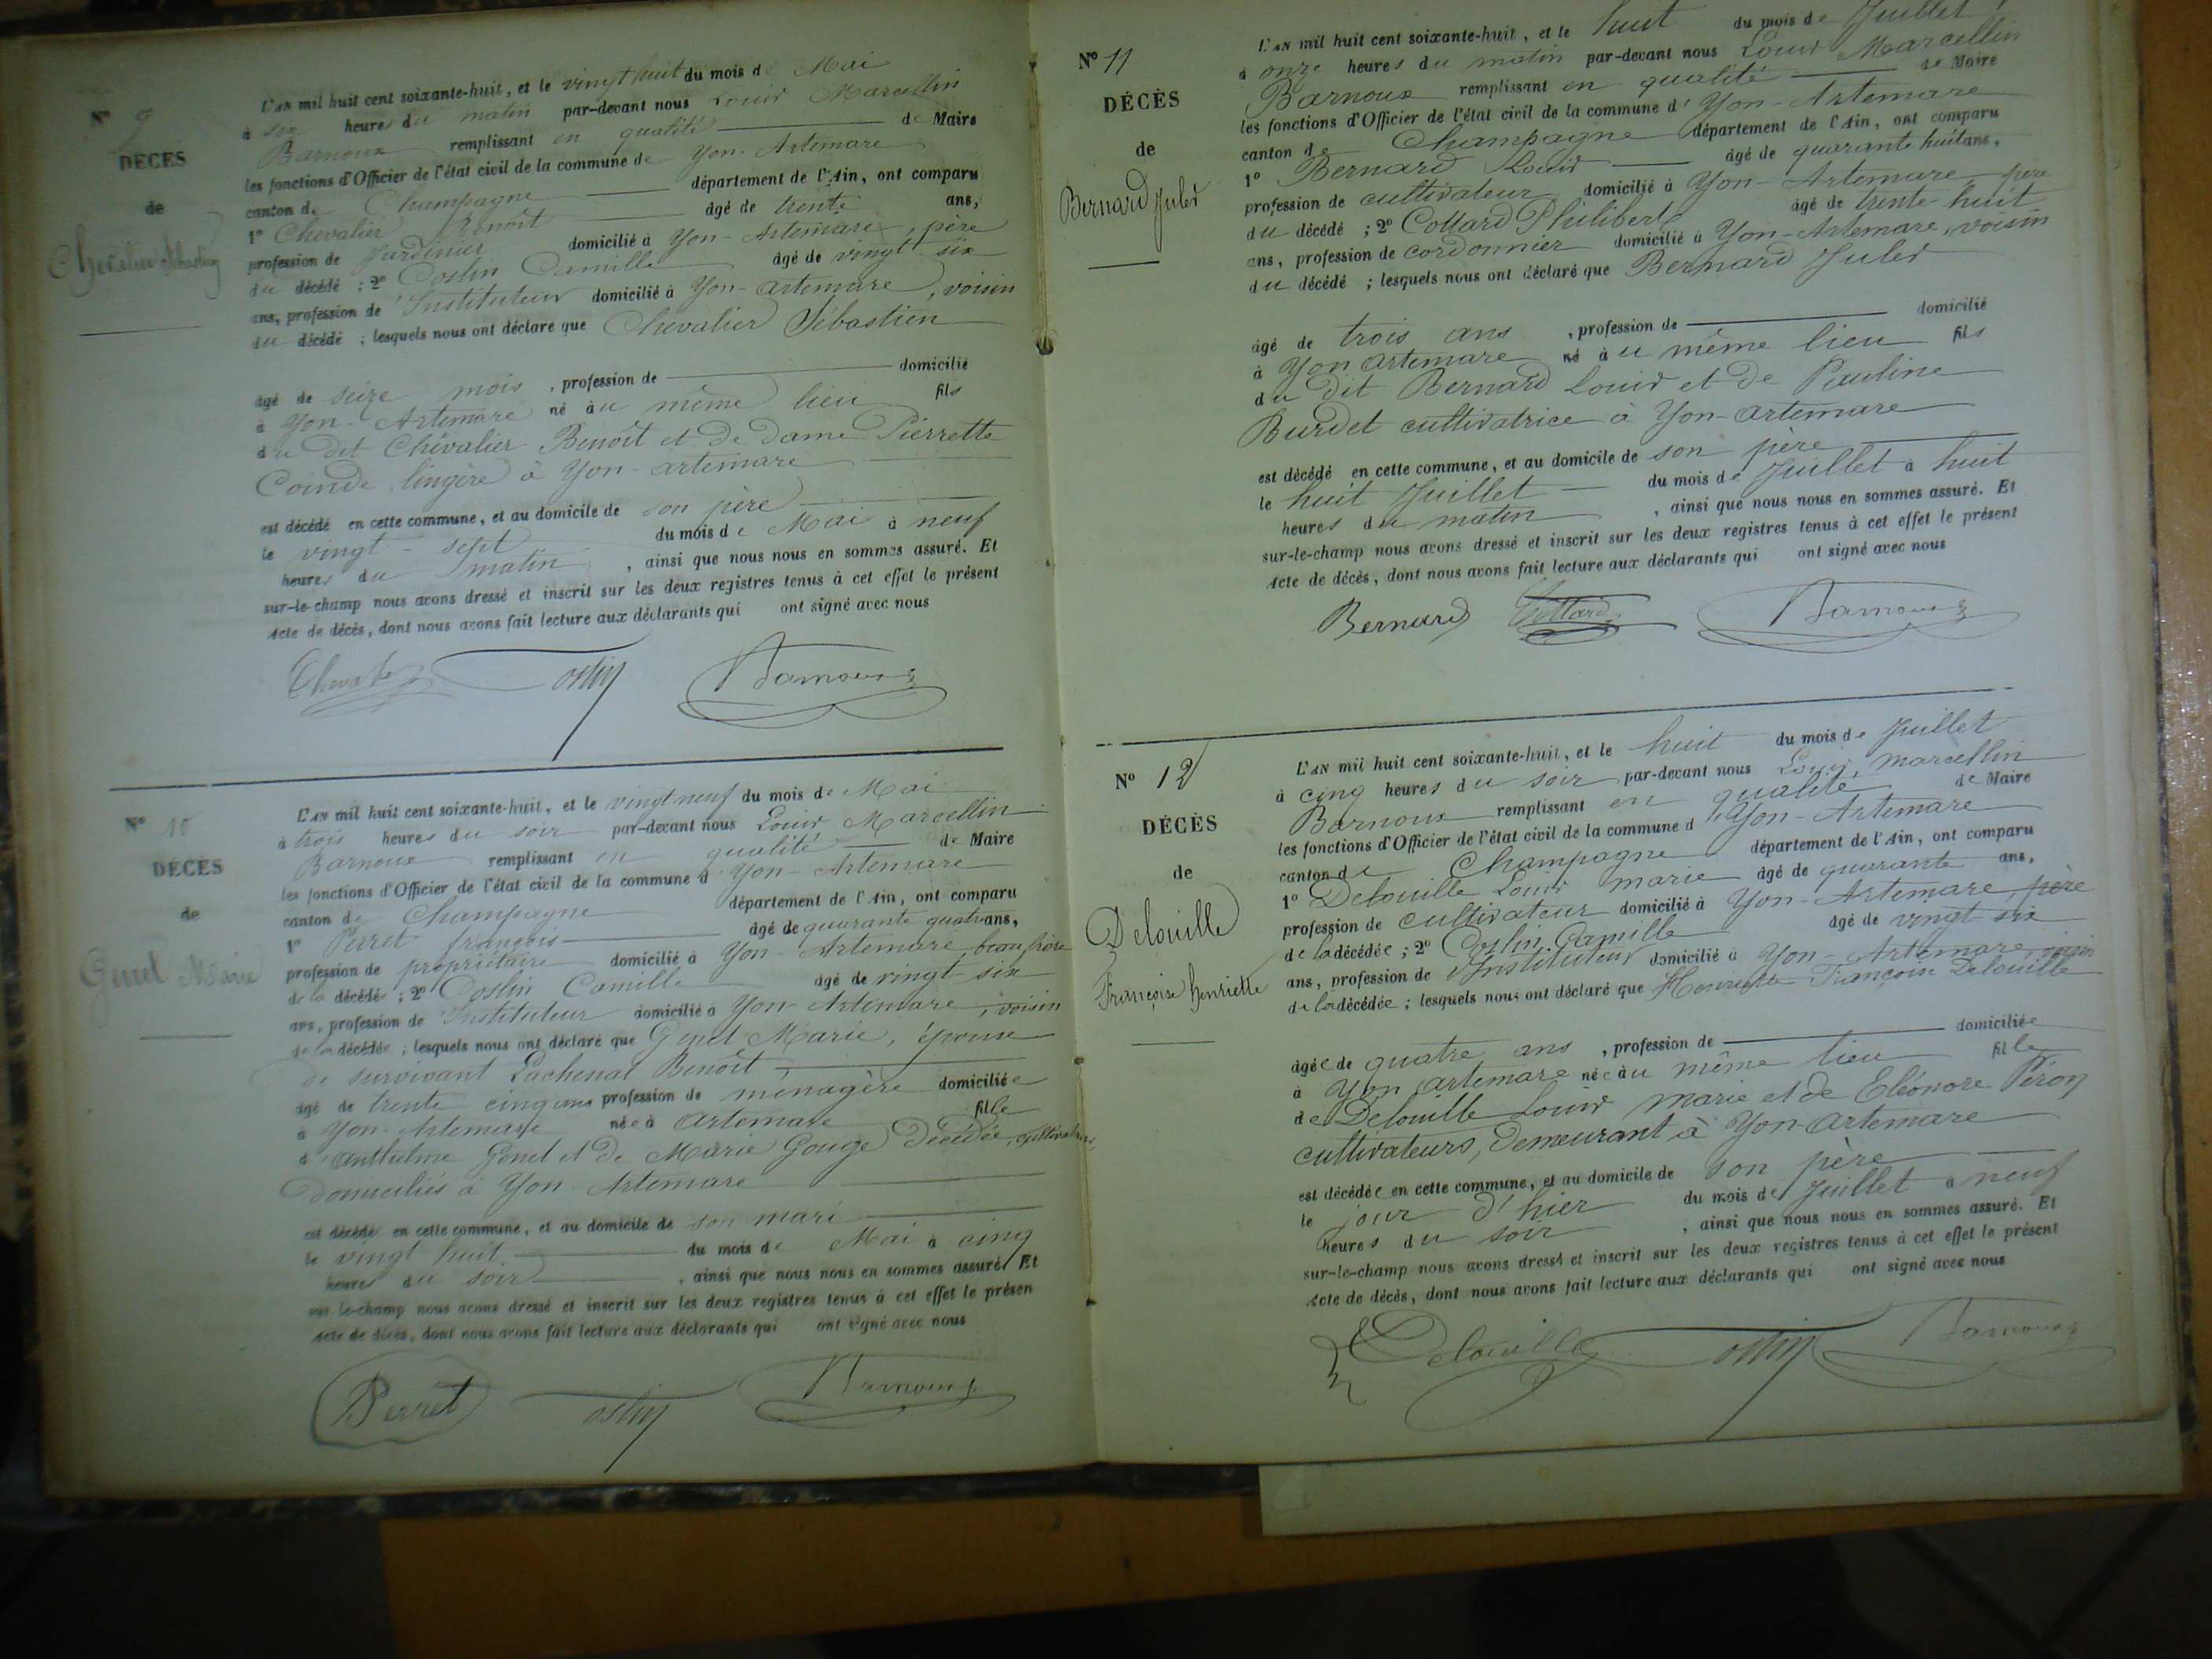 N° 9
DÉCÈS
de
Chevalier Sébastien
L'AN mil huit cent soixante-huit, et le vingt huit du mois de Mai
à six heures du matin par-devant nous Louis Marcellin
Barnoux remplissant en qualité de Maire
les fonctions d'Officier de l'état civil de la commune de Yon-Artemare
canton de Champagne département de l'Ain, ont comparu
1° Chevalier Benoît âgé de trente ans,
profession de Jardinier domicilié à Yon-Artemare, père
du décédé ; 2° Costin Camille âgé de vingt-six
ans, profession de Instituteur domicilié à Yon-artemare, voisin
du décédé ; lesquels nous ont déclaré que Chevalier Sébastien
âgé de seize mois, profession de domicilié
à Yon-Artemare né au même lieu fils
du dit Chevalier Benoît et de Dame Pierrette
Coinde lingère à Yon-artemare
est décédé en cette commune, et au domicile de son père
le vingt-sept du mois de Mai à neuf
heures du matin, ainsi que nous nous en sommes assuré. Et
sur-le-champ nous avons dressé et inscrit sur les deux registres tenus à cet effet le présent
Acte de décès, dont nous avons fait lecture aux déclarants qui ont signé avec nous
Chevalier Costin Barnoux
N° 10
DÉCÈS
de
Genet Marie
L'AN mil huit cent soixante-huit, et le vingt neuf du mois de Mai
à trois heures du soir par-devant nous Louis Marcellin
Barnoux remplissant en qualité de Maire
les fonctions d'Officier de l'état civil de la commune d'Yon-Artemare
canton de Champagne département de l'Ain, ont comparu
1° Perret françois âgé de quarante quatre ans,
profession de propriétaire domicilié à Yon-Artemare beau frère
de la décédée ; 2° Costin Camille âgé de vingt six
ans, profession de Instituteur domicilié à Yon-Artemare, voisin
de la décédée ; lesquels nous ont déclaré que Genet Marie, épouse
de survivant Lachenal Benoît,
âgé de trente cinq ans profession de ménagère domiciliée
à Yon-Artemare née à Artemare fille
d'Anthelme Genet et de Marie Gouge Décédée, cultivateurs,
Domiciliés à Yon-Artemare
est décédée en cette commune, et au domicile de son mari
le vingt huit du mois de Mai à cinq
heures du soir, ainsi que nous nous en sommes assuré. Et
sur-le-champ nous avons dressé et inscrit sur les deux registres tenus à cet effet le présen
Acte de décès, dont nous avons fait lecture aux déclarants qui ont signé avec nous
Perret Costin Barnoux
N° 11
DÉCÈS
de
Bernard Jules
L'AN mil huit cent soixante-huit, et le huit du mois de Juillet
à onze heures du matin par-devant nous Louis Marcellin
Barnoux remplissant en qualité de Maire
les fonctions d'Officier de l'état civil de la commune d'Yon-Artemare
canton de Champagne département de l'Ain, ont comparu
1° Bernard Louis âgé de quarante huit ans,
profession de cultivateur domicilié à Yon-Artemare père
du décédé ; 2° Collard Philibert âgé de trente-huit
ans, profession de cordonnier domicilié à Yon-Artemare, voisin
du décédé ; lesquels nous ont déclaré que Bernard Jules
âgé de trois ans, profession de domicilié
à Yon Artemare né au même lieu fils
du dit Bernard Louis et de Pauline
Burdet cultivatrice à Yon-artemare
est décédé en cette commune, et au domicile de son père
le huit Juillet du mois de Juillet à huit
heures du matin, ainsi que nous nous en sommes assuré. Et
sur-le-champ nous avons dressé et inscrit sur les deux registres tenus à cet effet le présent
Acte de décès, dont nous avons fait lecture aux déclarants qui ont signé avec nous
Bernard Collard Barnoux
N° 12
DÉCÈS
de
Delouille
Françoise henriette
L'AN mil huit cent soixante-huit, et le huit du mois de Juillet
à cinq heures du soir par-devant nous Louis, marcellin
Barnoux remplissant en qualité de Maire
les fonctions d'Officier de l'état civil de la commune d'Yon-Artemare
canton de Champagne département de l'Ain, ont comparu
1° Delouille Louis marie âgé de quarante ans,
profession de cultivateur domicilié à Yon-Artemare, père
de la décédée ; 2° Costin Camille âgé de vingt six
ans, profession de Instituteur domicilié à Yon-Artemare, voisin
de la décédée ; lesquels nous ont déclaré que Henriette Françoise Delouille
âgée de quatre ans, profession de domiciliée
à Yon artemare née au même lieu fille
de Delouille Louis marie et de Eléonore Péron
cultivateurs, Demeurant à Yon-artemare
est décédée en cette commune, et au domicile de son père
le jour d'hier du mois de Juillet à neuf
heures du soir, ainsi que nous nous en sommes assuré. Et
sur-le-champ nous avons dressé et inscrit sur les deux registres tenus à cet effet le présent
Acte de décès, dont nous avons fait lecture aux déclarants qui ont signé avec nous
Delouille Costin Barnoux